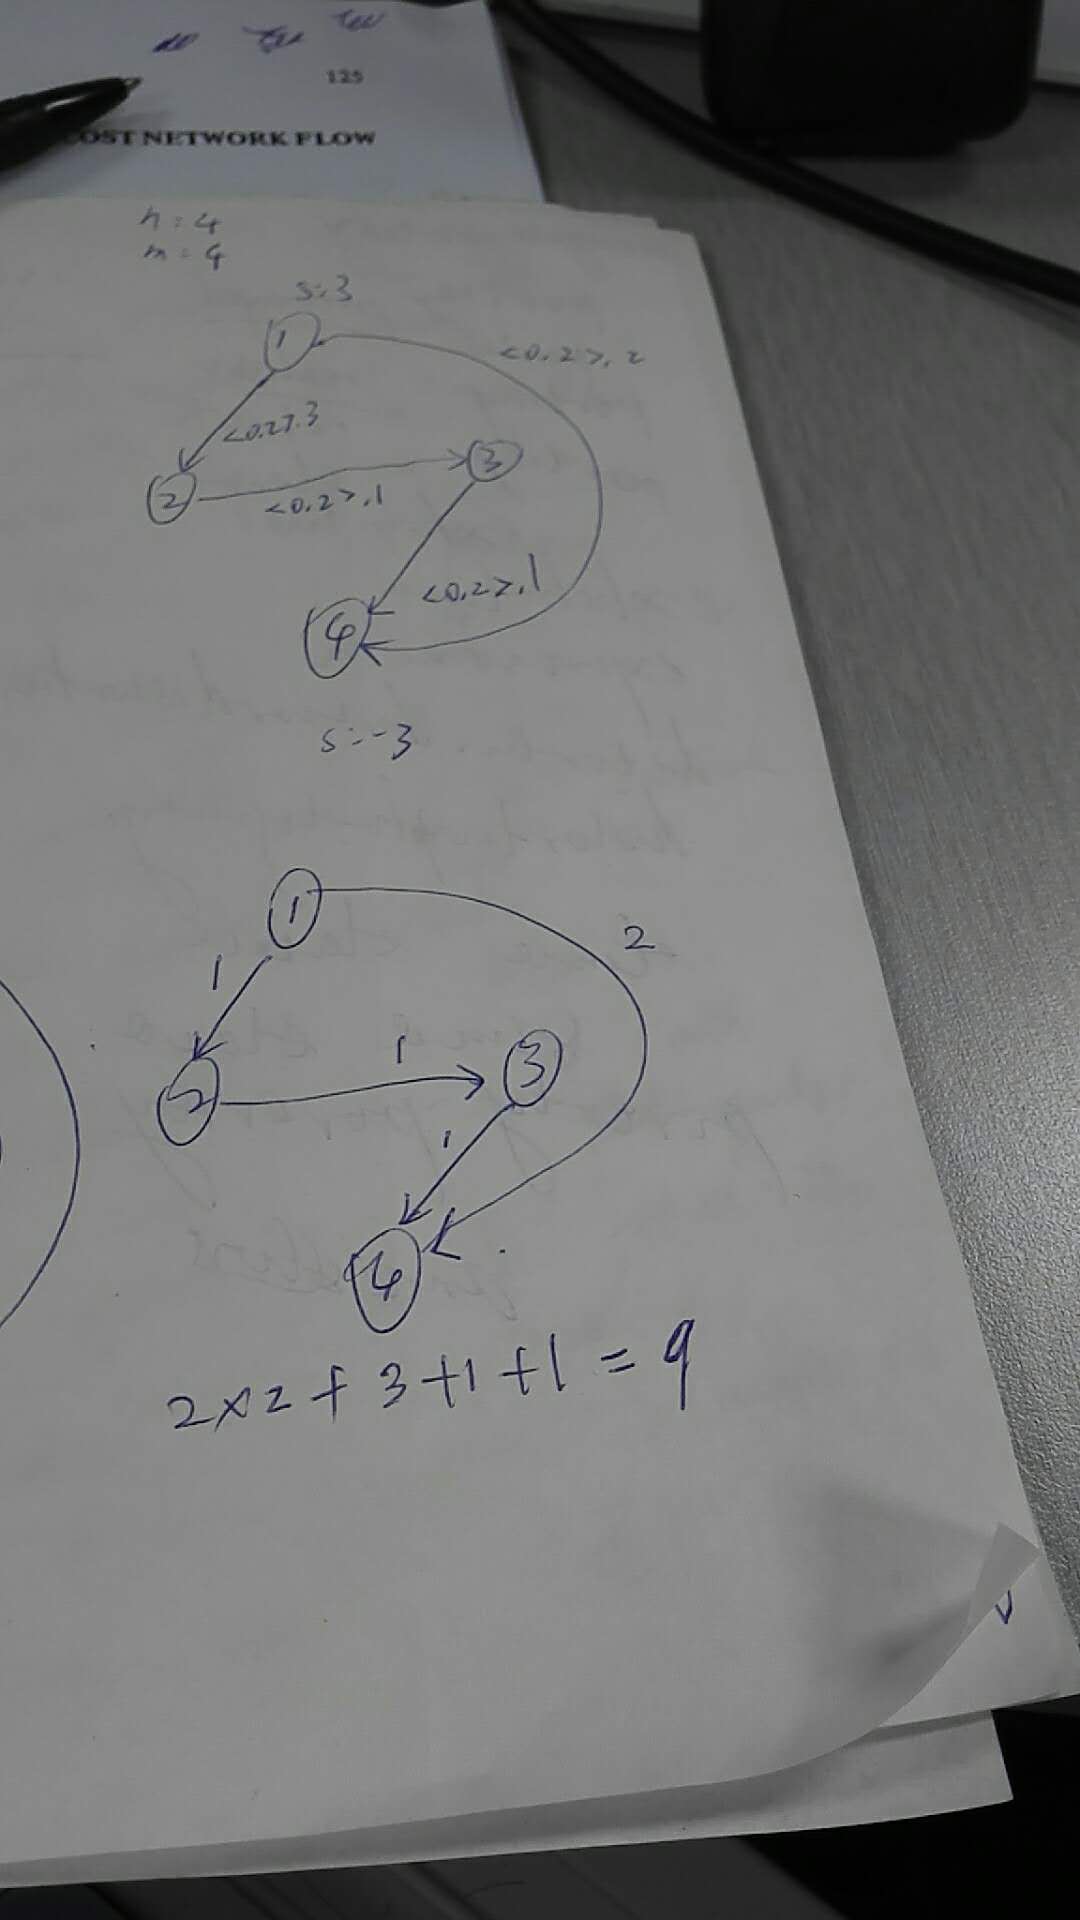 125
COST NETWORK FLOW
n = 4
m = 4
s = 3
1
<0,2>,2
<0,2>,3
3
2
<0,2>,1
<0,2>,1
4
s = -3
1
2
1
1
3
2
1
4
2×2 + 3+1+1 = 9